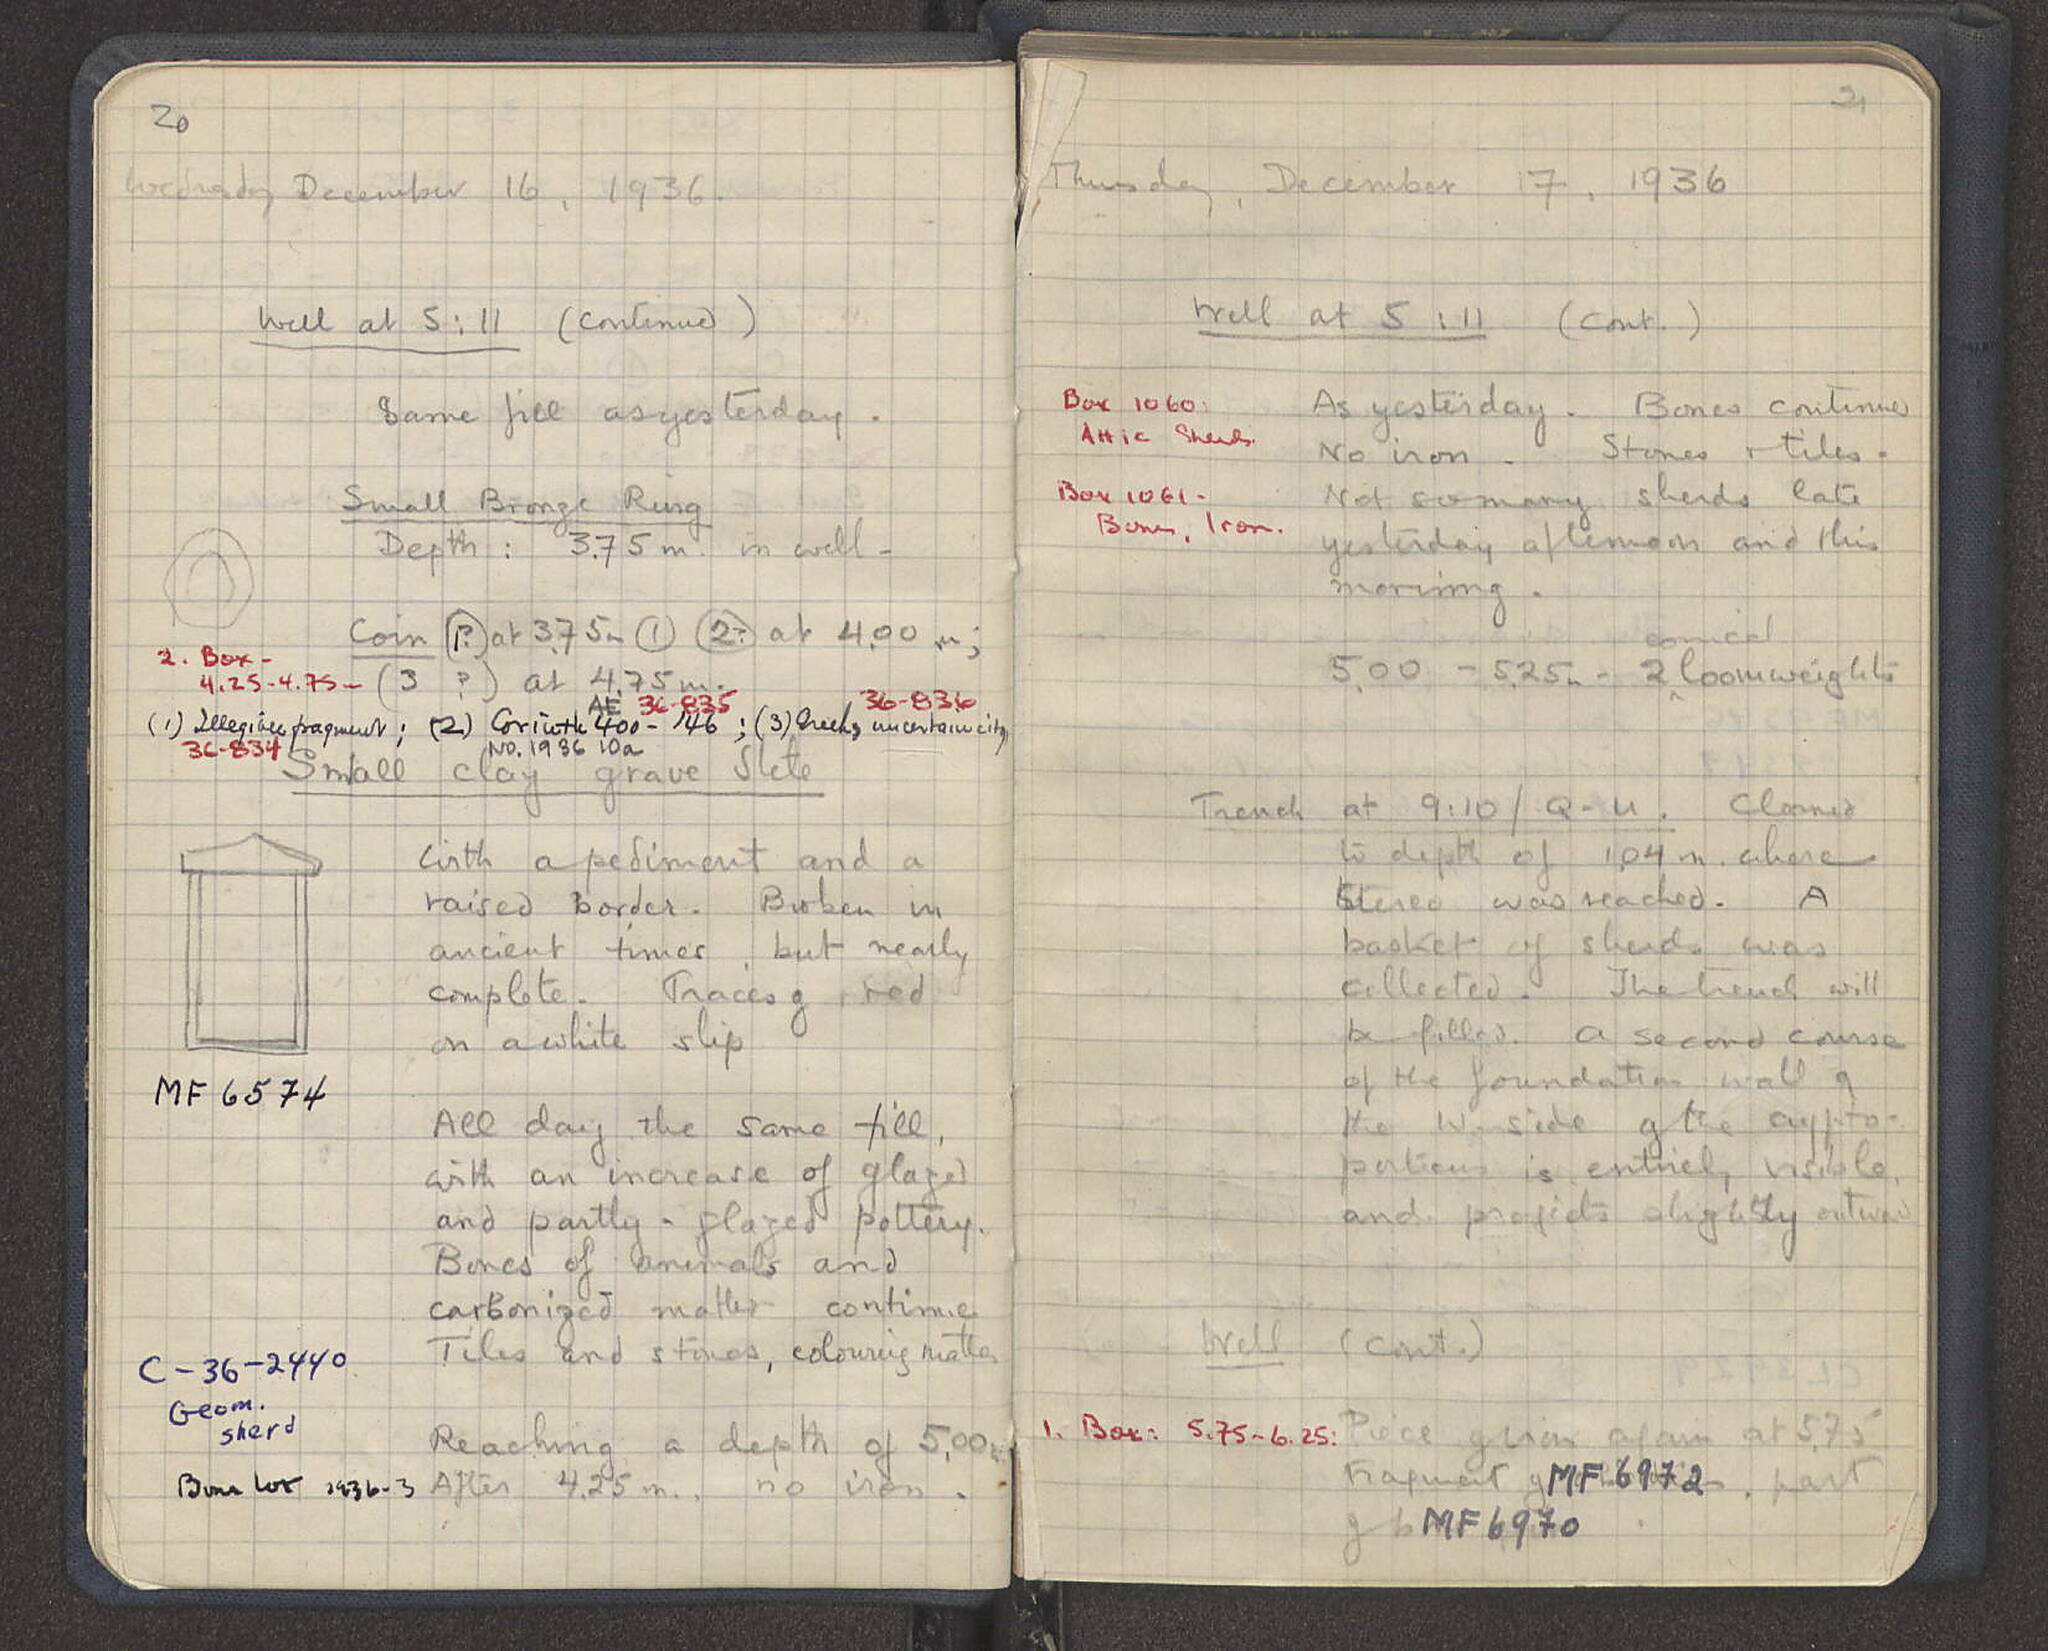 20
Wednesday December 16, 1936.
Well at S:11 (continued)
Same fill as yesterday.
Small Bronze Ring
Depth: 3.75 m. in well -
Coin (1?) at 3.75 m (1) (2?) at 4.00 m;
2. Box -
4.25-4.75 - (3 ?) at 4.75 m.
AE 36-835 36-836
(1) Illegible fragment; (2) Corinth 400-146; (3) Greek, uncertain city
36-834 No. 1936 10a
Small clay grave Stele
With a pediment and a
raised border. Broken in
ancient times, but nearly
complete. Traces of red
on a white slip
MF 6574
All day the same fill,
with an increase of glazed
and partly-glazed pottery.
Bones of animals and
carbonized matter continue
Tiles and stones, colouring matter
C-36-2440
Geom.
sherd
Reaching a depth of 5,00
Bone Lot 1936-3 After 4.25 m., no iron.
21
Thursday, December 17, 1936
Well at S:11 (cont.)
Box 1060: As yesterday. Bones continue
Attic Sherds. No iron. Stones + tiles.
Box 1061- Not so many sherds late
Bones, Iron. yesterday afternoon and this
morning.
conical
5.00 - 5.25 m - 2 loomweights
Trench at 9:10 / Q-U. Cleaned
to depth of 1.04 m. where
stereo was reached. A
basket of sherds was
collected. The trench will
be filled. A second course
of the foundation wall of
the W. side of the crypto-
porticus is entirely visible,
and projects slightly outward
Well (cont.)
1. Box: 5.75-6.25: Piece of iron again at 5,75
Fragment of MF 6972, part
of MF 6970